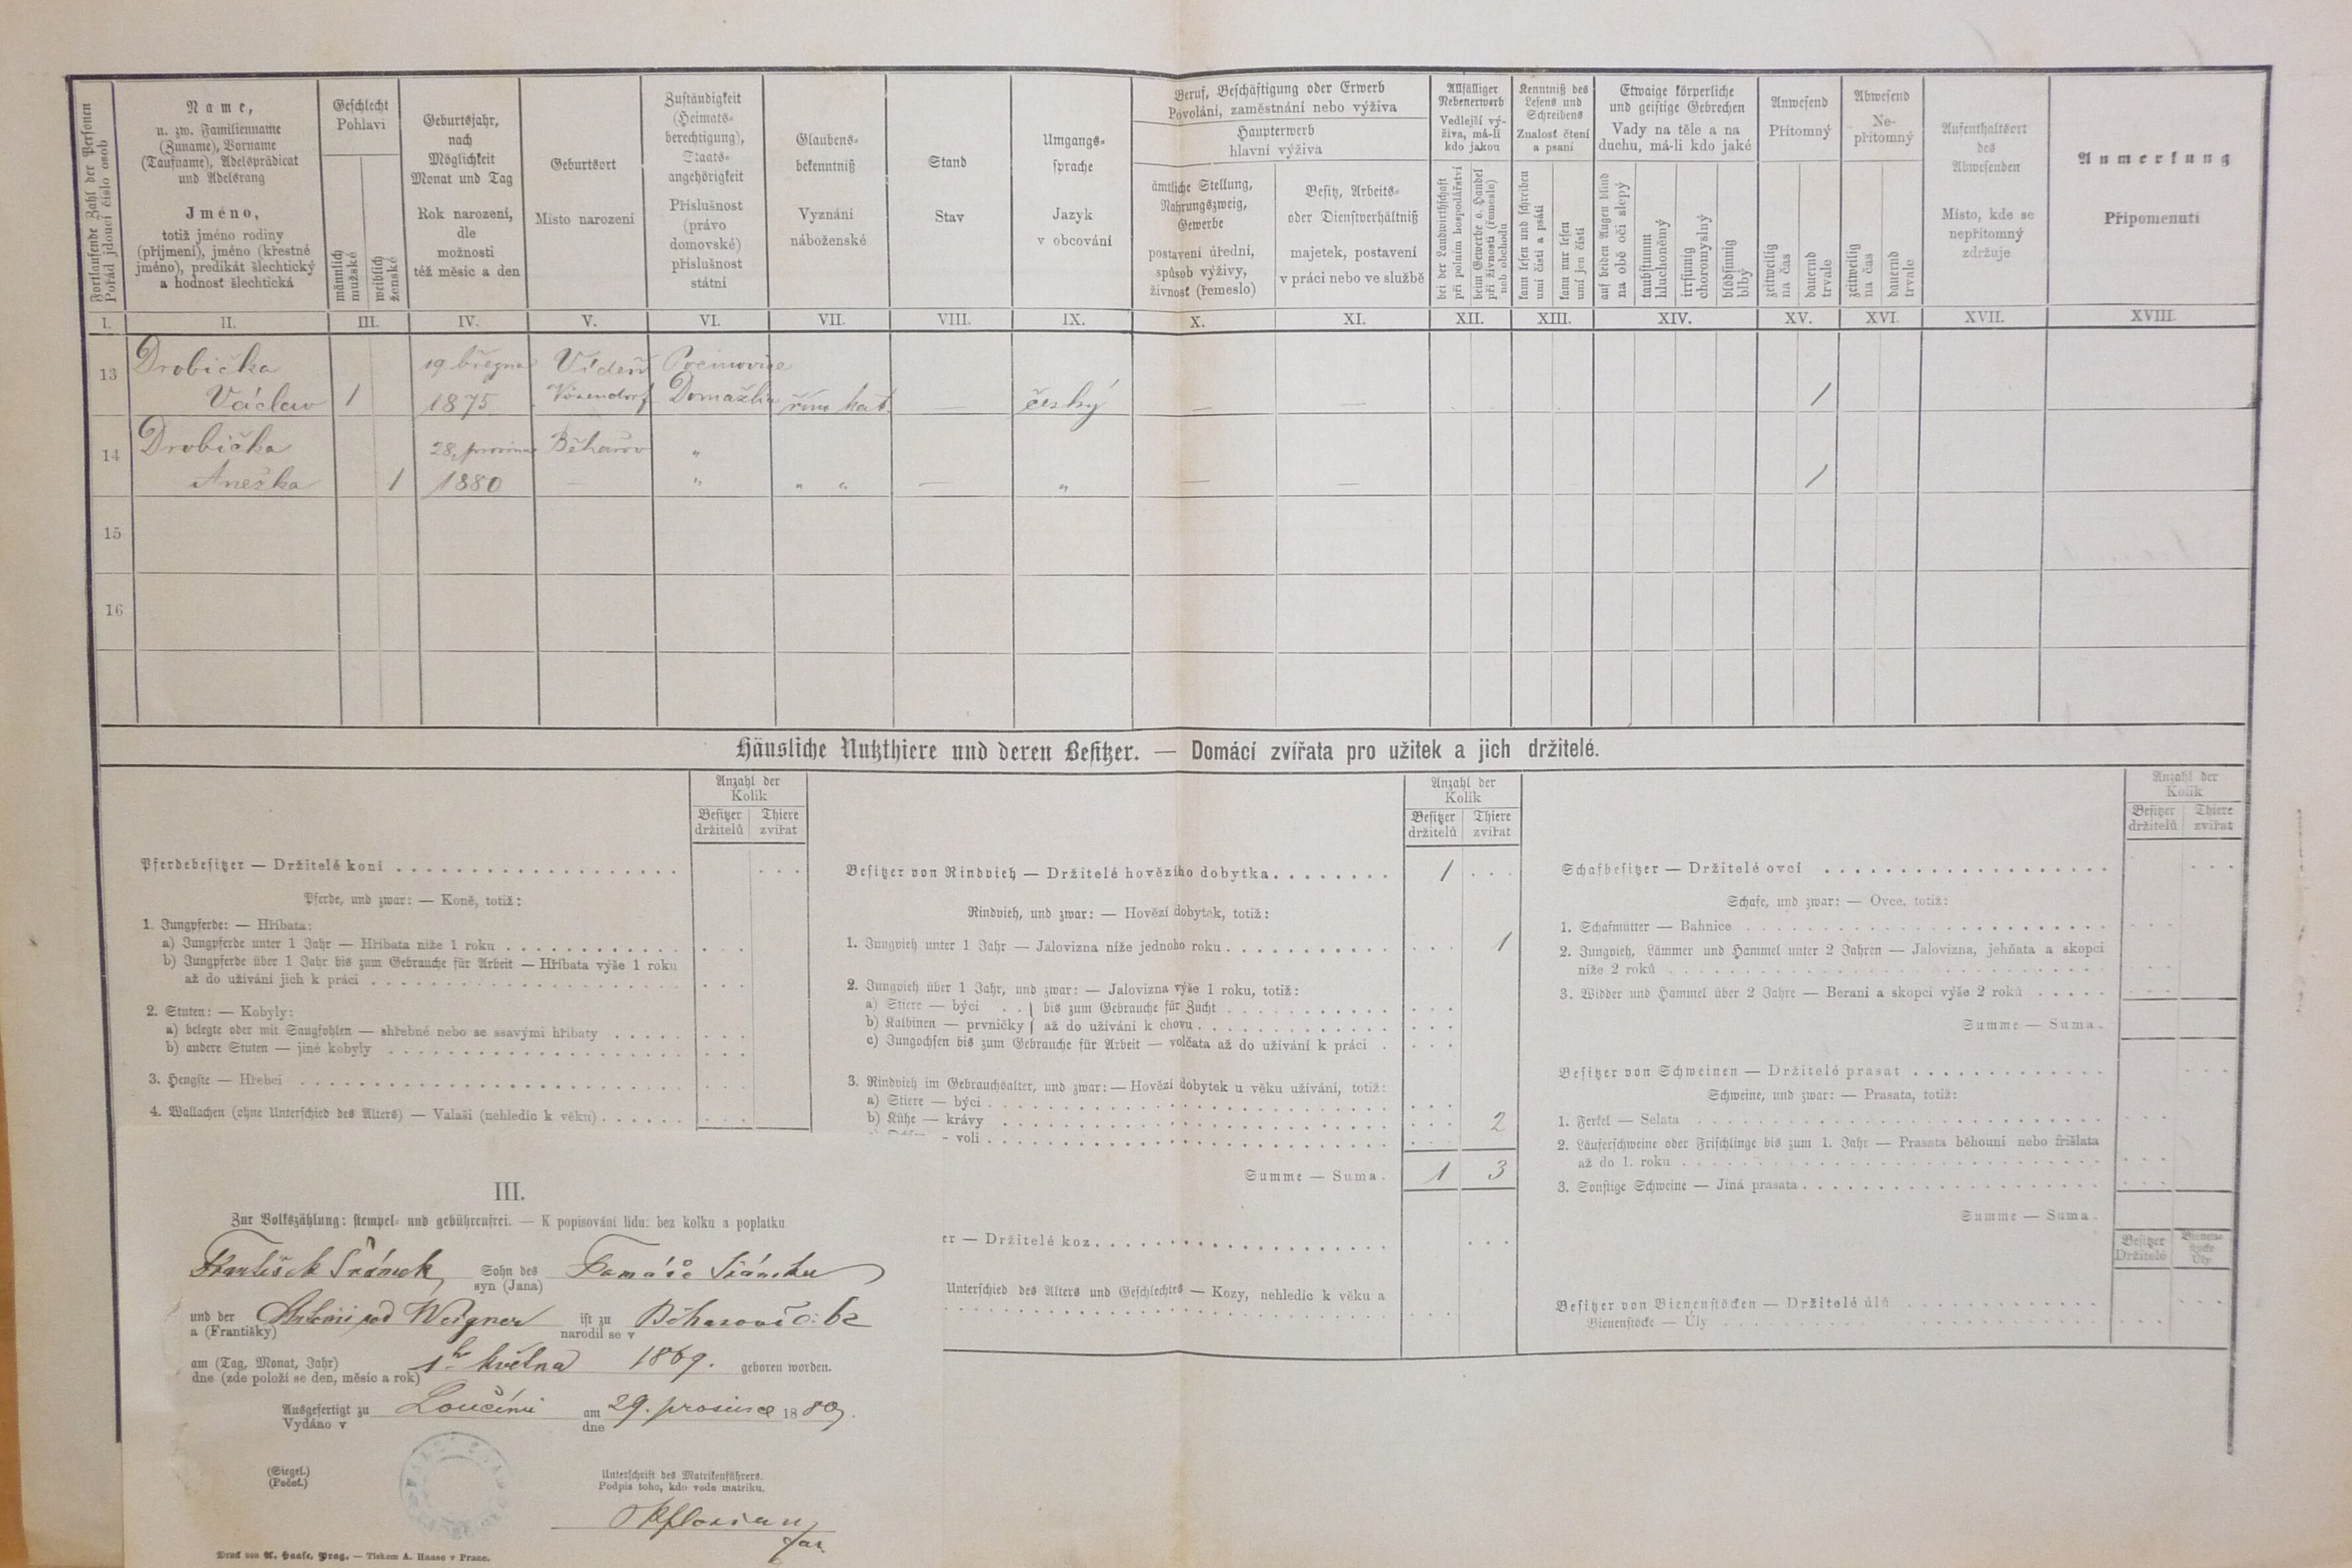 Fortlaufende Zahl der Personen
Pořád jdoucí číslo osob
Name,
u. zw. Familienname
(Zuname), Vorname
(Taufname), Adelsprädicat
und Adelsrang
Jméno,
totiž jméno rodiny
(příjmení), jméno (křestné
jméno), predikát šlechtický
a hodnosť šlechtická
Geschlecht
Pohlaví
männlich
mužské
weiblich
ženské
Geburtsjahr,
nach
Möglichkeit
Monat und Tag
Rok narození,
dle
možnosti
též měsíc a den
Geburtsort
Místo narození
Zuständigkeit
(Heimats-
berechtigung),
Staats-
angehörigkeit
Příslušnost
(právo
domovské)
příslušnost
státní
Glaubens-
bekenntniß
Vyznání
náboženské
Stand
Stav
Umgangs-
sprache
Jazyk
v obcování
Beruf, Beschäftigung oder Erwerb
Povolání, zaměstnání nebo výživa
Haupterwerb
hlavní výživa
ämtliche Stellung,
Nahrungszweig,
Gewerbe
postavení úřední,
způsob výživy,
živnost (řemeslo)
Besitz, Arbeits-
oder Dienstverhältniß
majetek, postavení
v práci nebo ve službě
Allfälliger
Nebenerwerb
Vedlejší vý-
živa, má-li
kdo jakou
bei der Landwirthschaft
při polním hospodářství
beim Gewerbe o. Handel
při živnosti (řemesle)
neb obchodu
Kenntniß des
Lesens und
Schreibens
Znalost čtení
a psaní
kann lesen und schreiben
umí čísti a psáti
kann nur lesen
umí jen čísti
Etwaige körperliche
und geistige Gebrechen
Vady na těle a na
duchu, má-li kdo jaké
auf beiden Augen blind
na obě oči slepý
taubstumm
hluchoněmý
irrsinnig
choromyslný
blödsinnig
blbý
Anwesend
Přítomný
zeitweilig
na čas
dauernd
trvale
Abwesend
Ne-
přítomný
zeitweilig
na čas
dauernd
trvale
Aufenthaltsort
des
Abwesenden
Místo, kde se
nepřítomný
zdržuje
Anmerkung
Připomenutí
I. II. III. IV. V. VI. VII. VIII. IX. X. XI. XII. XIII. XIV. XV. XVI. XVII. XVIII.
13 Drobička 19 března Vídeň Pocinovice
Václav 1 1875 Vösendorf Domažlic řím kat. — český — — 1
14 Drobička 28. prosince Běhařov "
Anežka 1 1880 — " " " — " — — 1
15
16
Häusliche Nutzthiere und deren Besitzer. — Domácí zvířata pro užitek a jich držitelé.
Anzahl der
Kolik
Besitzer Thiere
držitelů zvířat
Pferdebesitzer — Držitelé koní
Pferde, und zwar: — Koně, totiž:
1. Jungpferde: — Hříbata:
a) Jungpferde unter 1 Jahr — Hříbata níže 1 roku
b) Jungpferde über 1 Jahr bis zum Gebrauche für Arbeit — Hříbata výše 1 roku
až do užívání jich k práci
2. Stuten: — Kobyly:
a) belegte oder mit Saugfohlen — shřebné nebo se ssavými hříbaty
b) andere Stuten — jiné kobyly
3. Hengste — Hřebci
4. Wallachen (ohne Unterschied des Alters) — Valaši (nehledíc k věku)
Anzahl der
Kolik
Besitzer Thiere
držitelů zvířat
Besitzer von Rindvieh — Držitelé hovězího dobytka 1
Rindvieh, und zwar: — Hovězí dobytek, totiž:
1. Jungvieh unter 1 Jahr — Jalovizna níže jednoho roku 1
2. Jungvieh über 1 Jahr, und zwar: — Jalovizna výše 1 roku, totiž:
a) Stiere — býci . . } bis zum Gebrauche für Zucht
b) Kalbinen — prvničky } až do užívání k chovu
c) Jungochsen bis zum Gebrauche für Arbeit — volčata až do užívání k práci
3. Rindvieh im Gebrauchsalter, und zwar: — Hovězí dobytek u věku užívání, totiž:
a) Stiere — býci
b) Kühe — krávy 2
— voli
Summe — Suma. 1 3
er — Držitelé koz
Unterschied des Alters und Geschlechtes — Kozy, nehledíc k věku a
Anzahl der
Kolik
Besitzer Thiere
držitelů zvířat
Schafbesitzer — Držitelé ovcí
Schafe, und zwar: — Ovce, totiž:
1. Schafmütter — Bahnice
2. Jungvieh, Lämmer und Hammel unter 2 Jahren — Jalovizna, jehňata a skopci
níže 2 roků
3. Widder und Hammel über 2 Jahre — Berani a skopci výše 2 roků
Summe — Suma.
Besitzer von Schweinen — Držitelé prasat
Schweine, und zwar: — Prasata, totiž:
1. Ferkel — Selata
2. Läuferschweine oder Frischlinge bis zum 1. Jahr — Prasata běhouní nebo frišlata
až do 1. roku
3. Sonstige Schweine — Jiná prasata
Summe — Suma.
Besitzer Bienen-
Držitelé stöcke
Úly
Besitzer von Bienenstöcken — Držitelé úlů
Bienenstöcke — Úly
III.
Zur Volkszählung: stempel- und gebührenfrei. — K popisování lidu: bez kolku a poplatku
František Šrámek, Sohn des Tomáše Šrámka
syn (Jana)
und der rod Weigner ist zu Běhařově č: 62
a (Františky) narodil se v
am (Tag, Monat, Jahr) 1ho května 1869. geboren worden.
dne (zde položí se den, měsíc a rok)
Ausgefertigt zu Loučími am 29. prosince 1889.
Vydáno v dne
(Siegel.)
(Pečeť.)
Unterschrift des Matrikenführers.
Podpis toho, kdo vede matriku.
Druck von A. Haase, Prag. — Tiskem A. Haase v Praze.